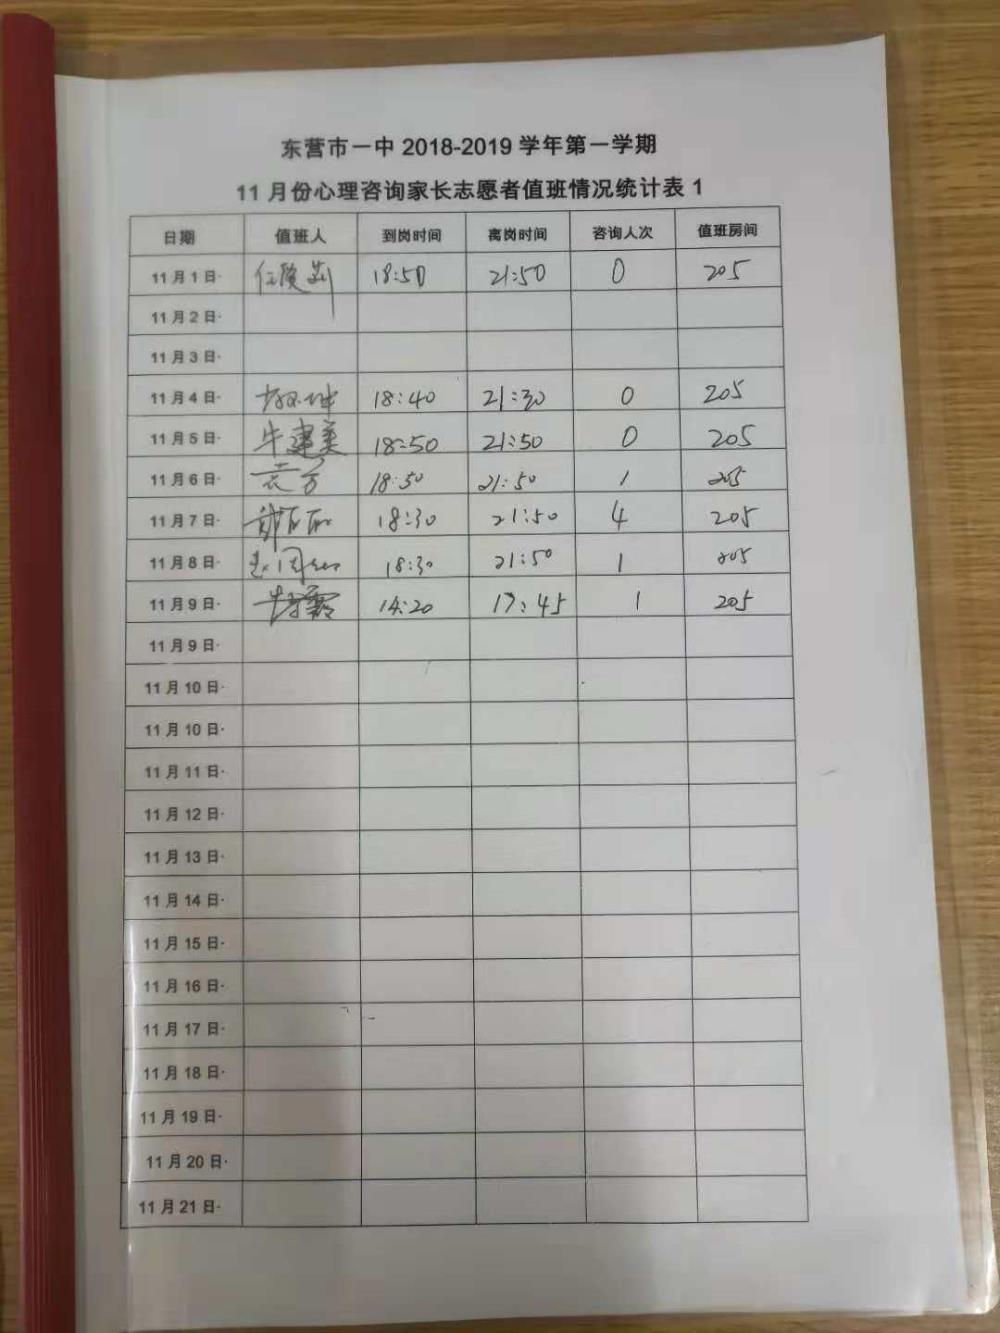 东营市一中 2018-2019 学年第一学期
11 月份心理咨询家长志愿者值班情况统计表 1
日期 值班人 到岗时间 离岗时间 咨询人次 值班房间
11 月 1 日 18:50 21:50 0 205
11 月 2 日
11 月 3 日
11 月 4 日 18:40 21:30 0 205
11 月 5 日 牛建美 18:50 21:50 0 205
11 月 6 日 袁方 18:50 21:50 1 205
11 月 7 日 18:30 21:50 4 205
11 月 8 日 18:30 21:50 1 205
11 月 9 日 14:20 17:45 1 205
11 月 9 日
11 月 10 日
11 月 10 日
11 月 11 日
11 月 12 日
11 月 13 日
11 月 14 日
11 月 15 日
11 月 16 日
11 月 17 日
11 月 18 日
11 月 19 日
11 月 20 日
11 月 21 日